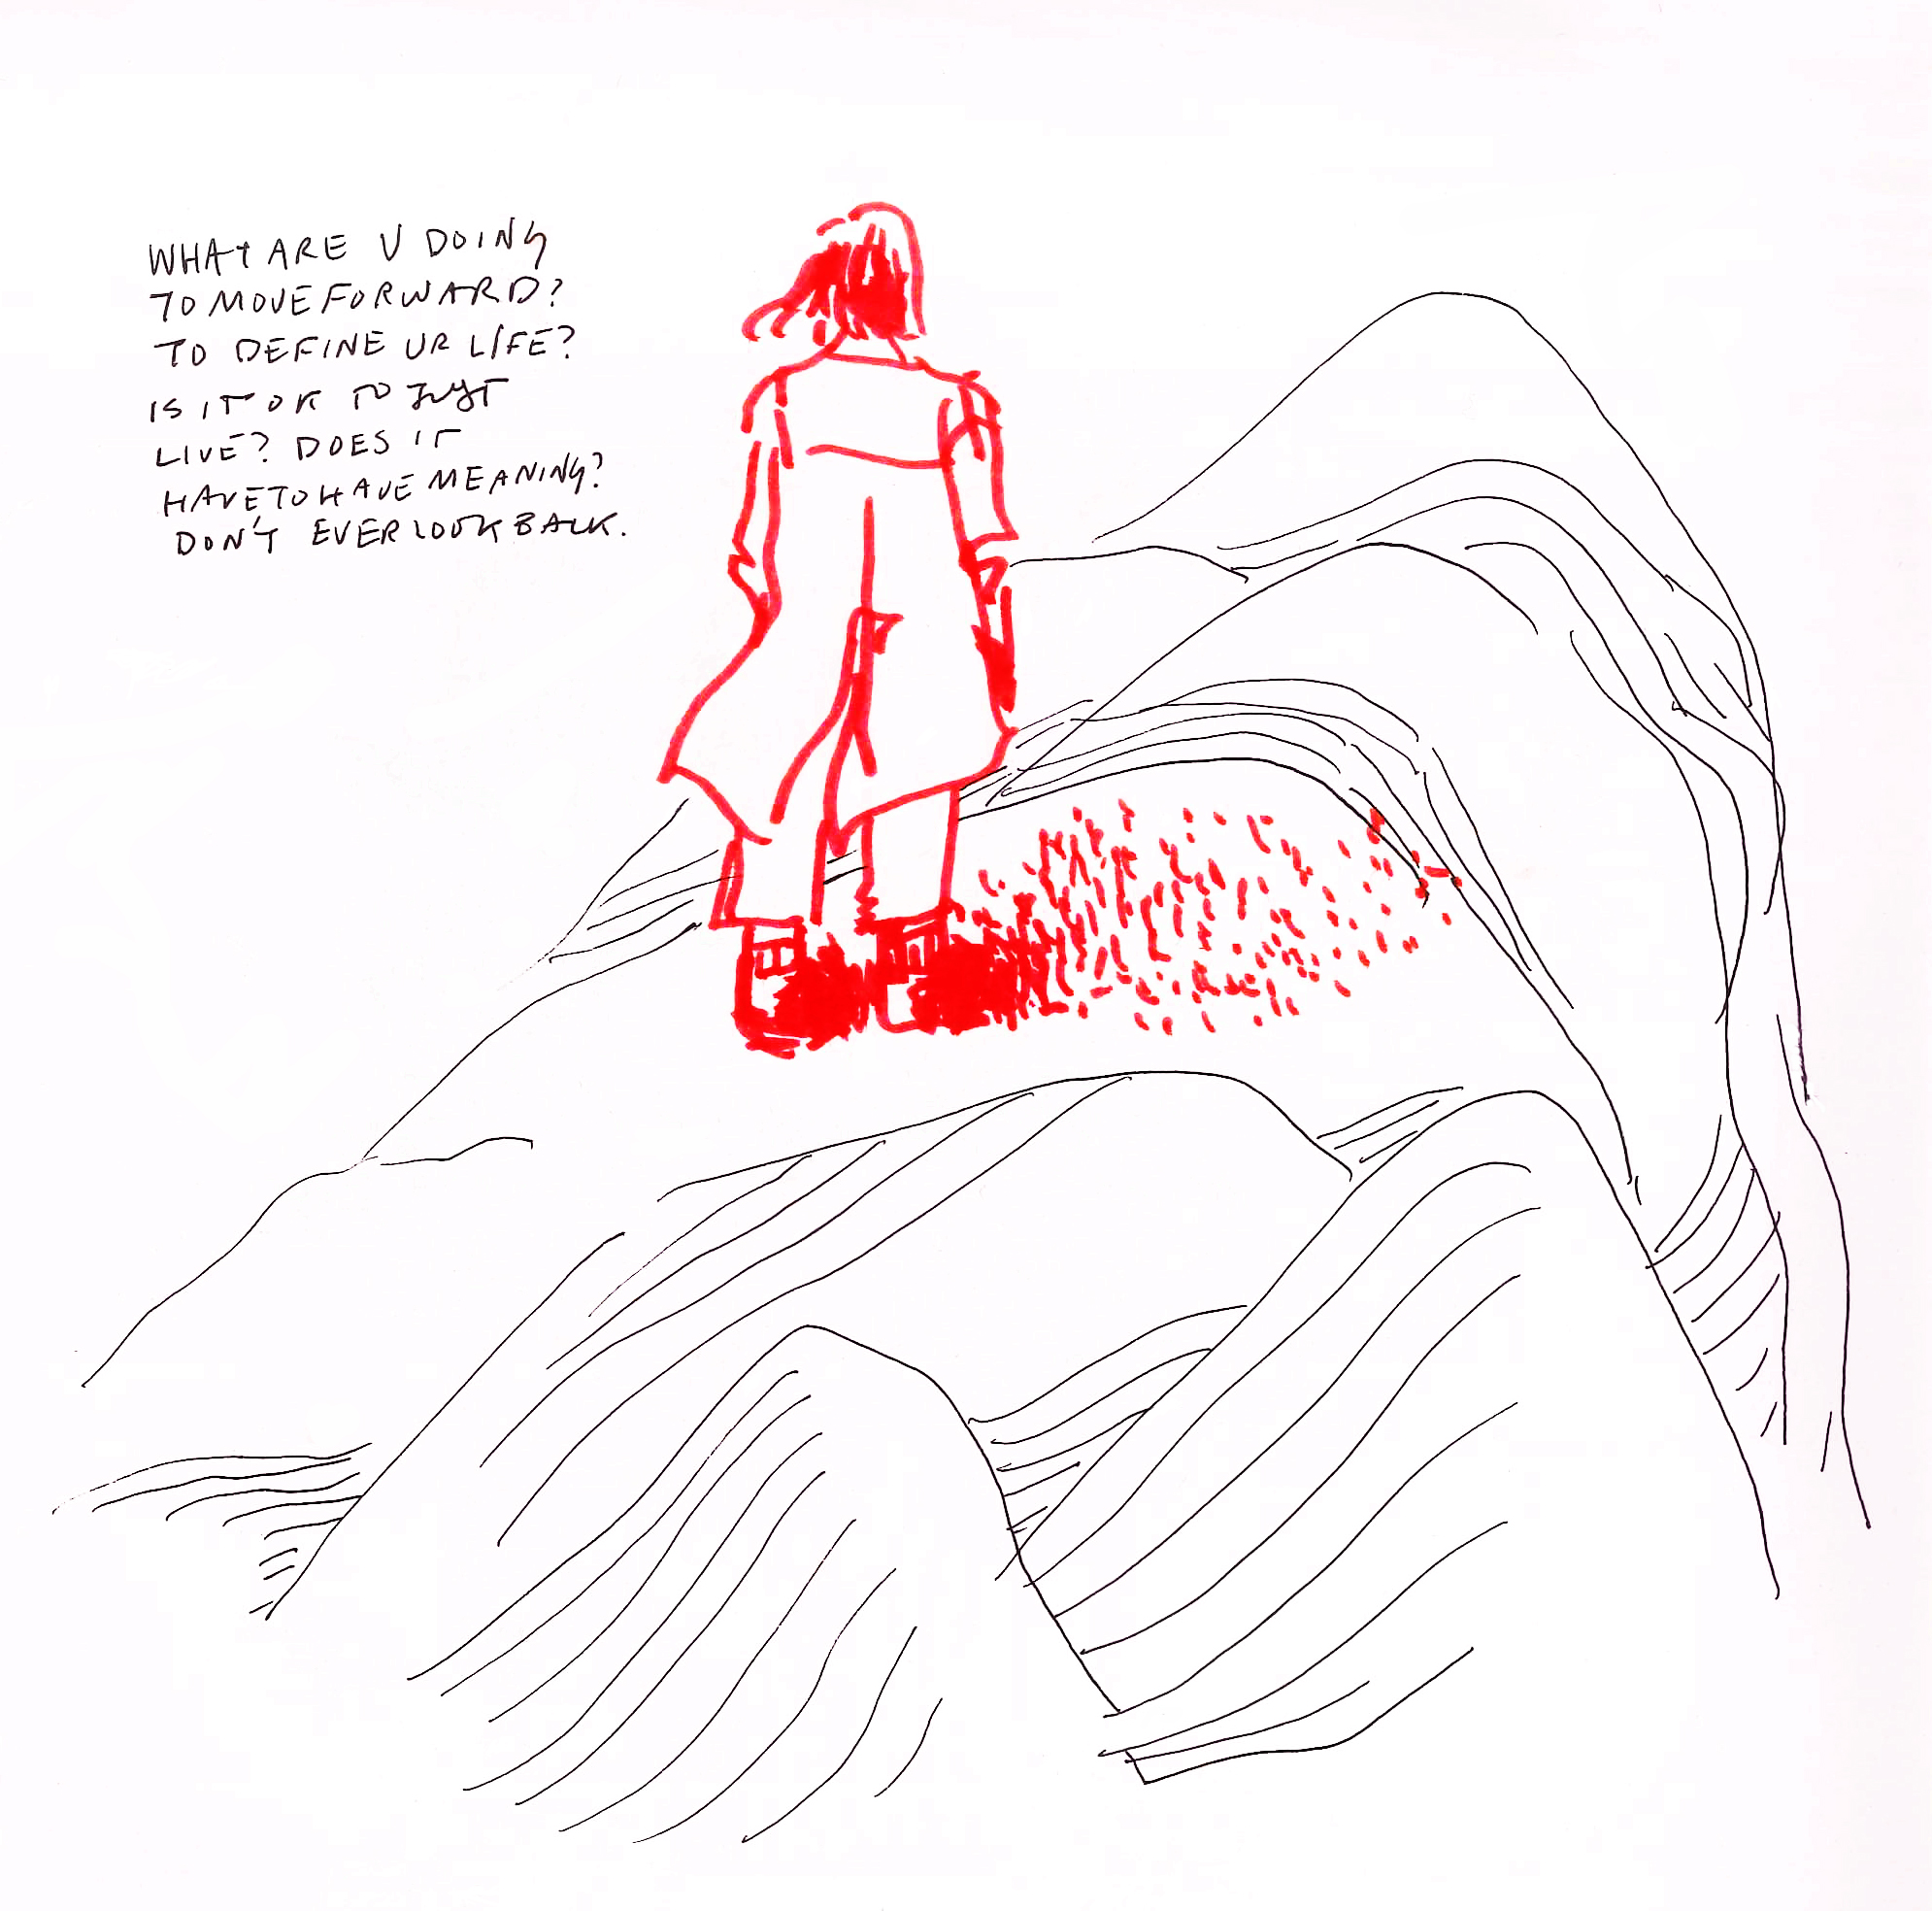 WHAT ARE U DOING
TO MOVE FORWARD?
TO DEFINE UR LIFE?
IS IT OK TO JUST
LIVE? DOES IT
HAVE TO HAVE MEANING?
DON'T EVER LOOK BACK.